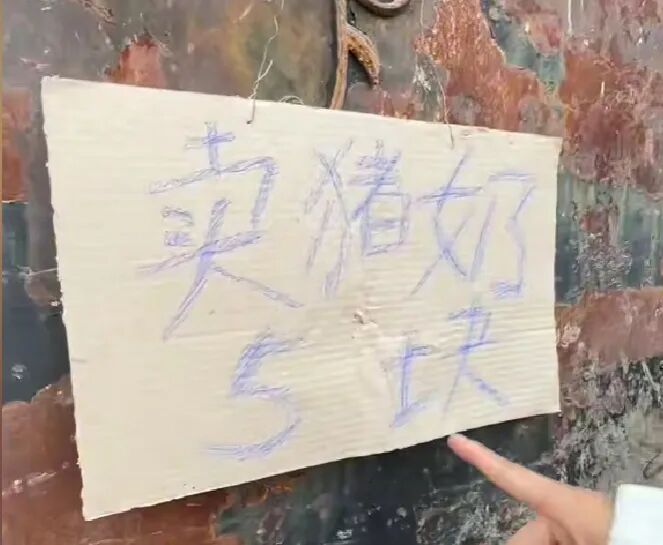 卖猪奶
5块